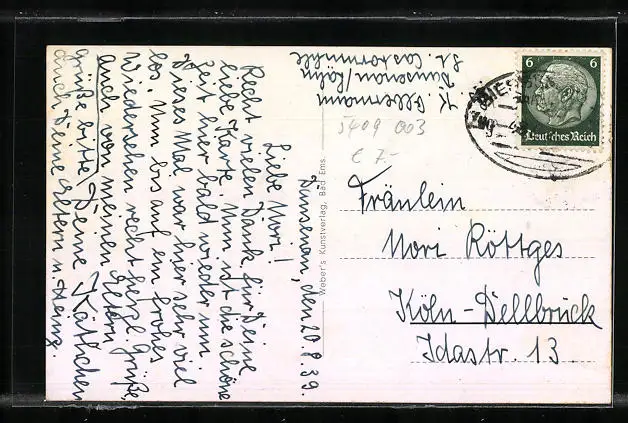 Dünenau, den 20.8.39.
Liebe Nori!
Recht vielen Dank für Deine
liebe Karte. Nun ist die schöne
Zeit hier bald wieder um.
Dieses Mal war hier sehr viel
los. Nun bis auf ein frohes
Wiedersehen recht herzl. Grüße,
auch von meinen Eltern
Deine Käthchen
grüße bitte
auch Deine Eltern u. Heinz.
K. Ellermann
5409 003
€ 7.-
Weber's Kunstverlag, Bad Ems.
6 6
Deutsches Reich
Fräulein
Nori Röttges
Köln-Dellbrück
Idastr. 13.